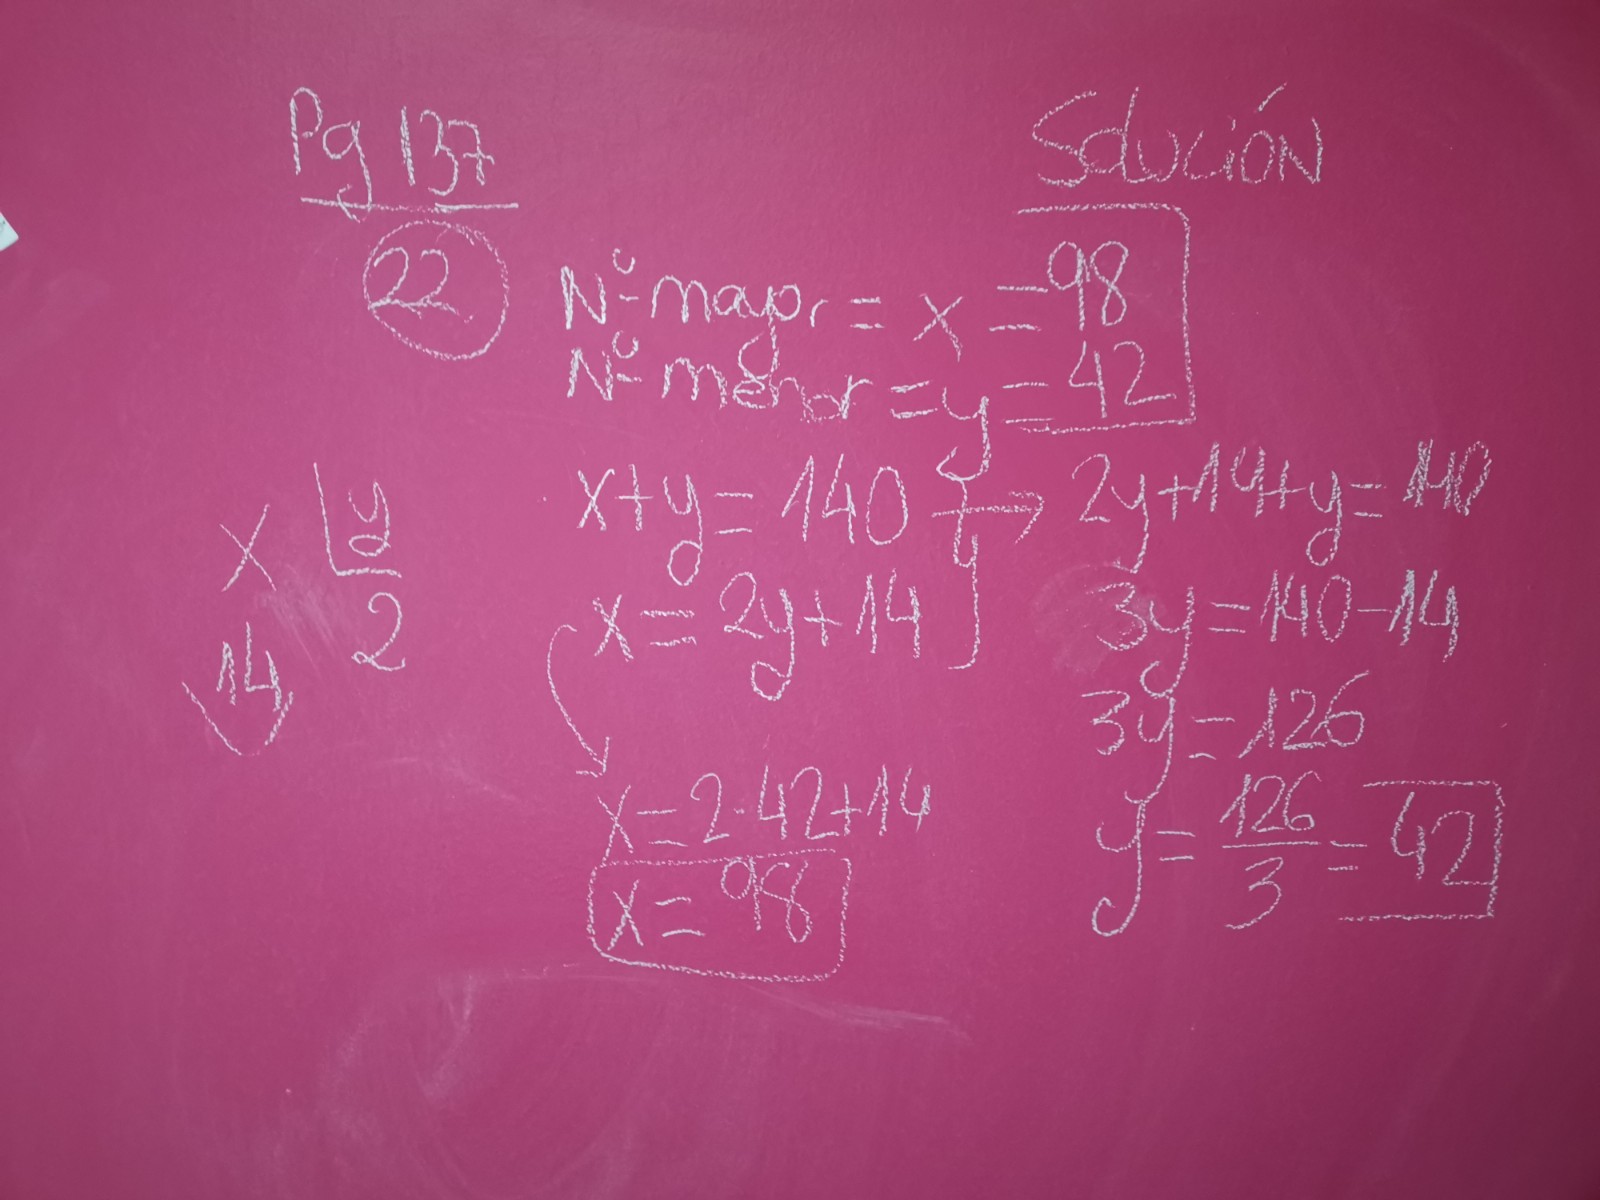 Pg 137
Solución
22
Nº mayor = x = 98
Nº menor = y = 42
x + y = 140
x = 2y + 14
x = 2·42 + 14
x = 98
2y + 14 + y = 140
3y = 140 - 14
3y = 126
y = 126/3 = 42
x y
14 2